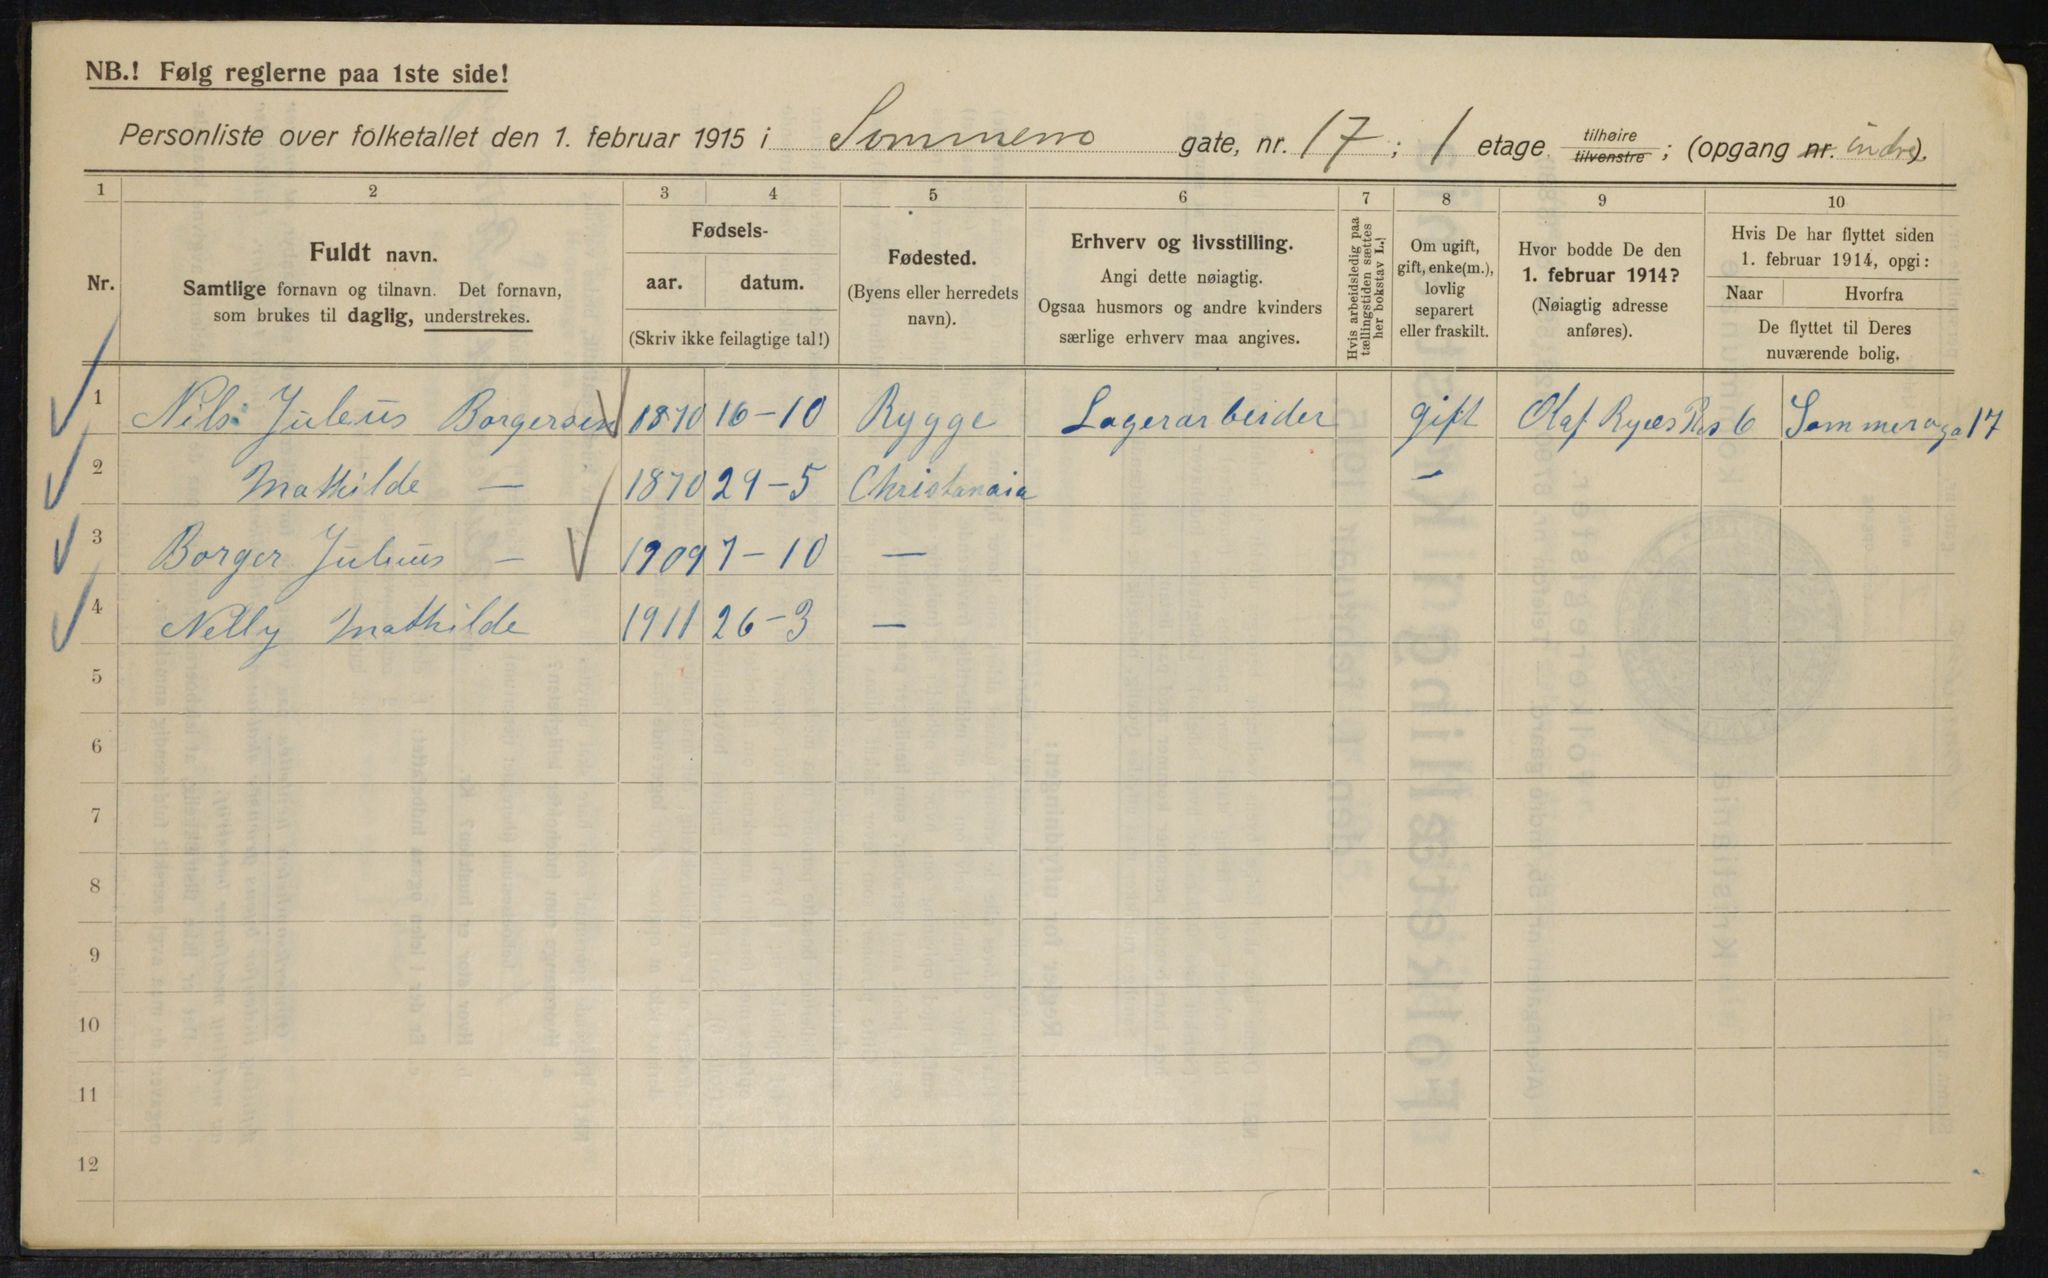 NB.! Følg reglerne paa 1ste side!
Personliste over folketallet den 1. februar 1915 i Sommerro gate, nr. 17; 1 etage tilhøire tilvenstre; (opgang nr. indre).
1 2 3 4 5 6 7 8 9 10
Nr.
Fuldt navn.
Samtlige fornavn og tilnavn. Det fornavn,
som brukes til daglig, understrekes.
Fødsels-
aar. datum.
(Skriv ikke feilagtige tal!)
Fødested.
(Byens eller herredets
navn).
Erhverv og livsstilling.
Angi dette nøiagtig.
Ogsaa husmors og andre kvinders
særlige erhverv maa angives.
Hvis arbeidsledig paa
tællingstiden sættes
her bokstav L.!
Om ugift,
gift, enke(m.),
lovlig
separert
eller fraskilt.
Hvor bodde De den
1. februar 1914?
(Nøiagtig adresse
anføres).
Hvis De har flyttet siden
1. februar 1914, opgi:
Naar Hvorfra
De flyttet til Deres
nuværende bolig.
1 Nils Julius Borgersen 1870 16-10 Rygge Lagerarbeider gift Olaf Ryes Pls 6 Sommerroga 17
2 Mathilde — 1870 29-5 Christanaia —
3 Borger Julius — 1909 7-10 —
4 Nelly Mathilde 1911 26-3 —
5
6
7
8
9
10
11
12